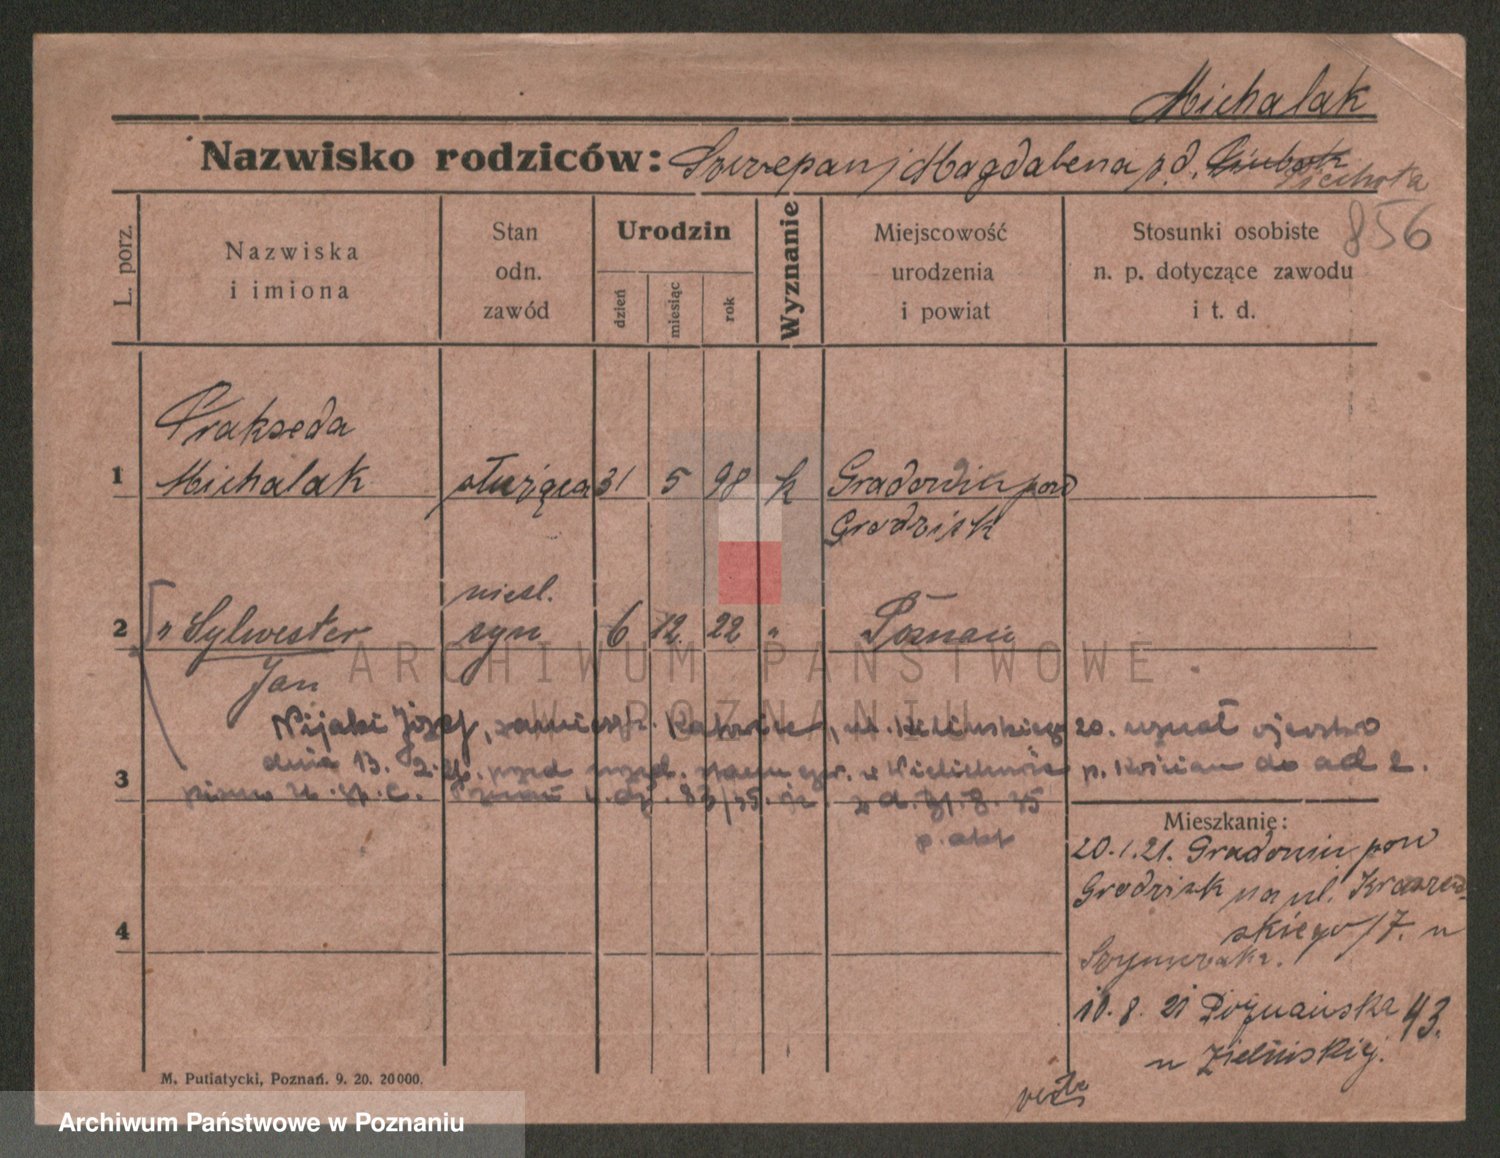 Michalak
Nazwisko rodziców: Szczepan i Magdalena z d. Piechota
856
L. porz.
Nazwiska
i imiona
Stan
odn.
zawód
Urodzin
dzień
miesiąc
rok
Wyznanie
Miejscowość
urodzenia
i powiat
Stosunki osobiste
n. p. dotyczące zawodu
i t. d.
Prakseda
1 Michalak służąca 31 5 98 k Gradowin pow
Grodzisk
nieśl.
2 " Sylwester syn 6 12. 22 " Poznań
Jan
Nijaki Józef, zamieszk. ul. Kilińskiego 20. uznał ojcostwo
dnia 13. 2. przed urzęd. stanu cyw. w p. Kościan do ad 2.
3 pismo Poznań 31. 8. 45
p. akt
Mieszkanie:
20.1.21. Gradowin pow
Grodzisk na ul. Kraszew-
skiego 17. u
Szymczaka.
4
10. 8. 21 Poznańska 43.
u Zielińskiej.
M. Putiatycki, Poznań. 9. 20. 20 000.
ARCHIWUM PAŃSTWOWE
W POZNANIU
Archiwum Państwowe w Poznaniu